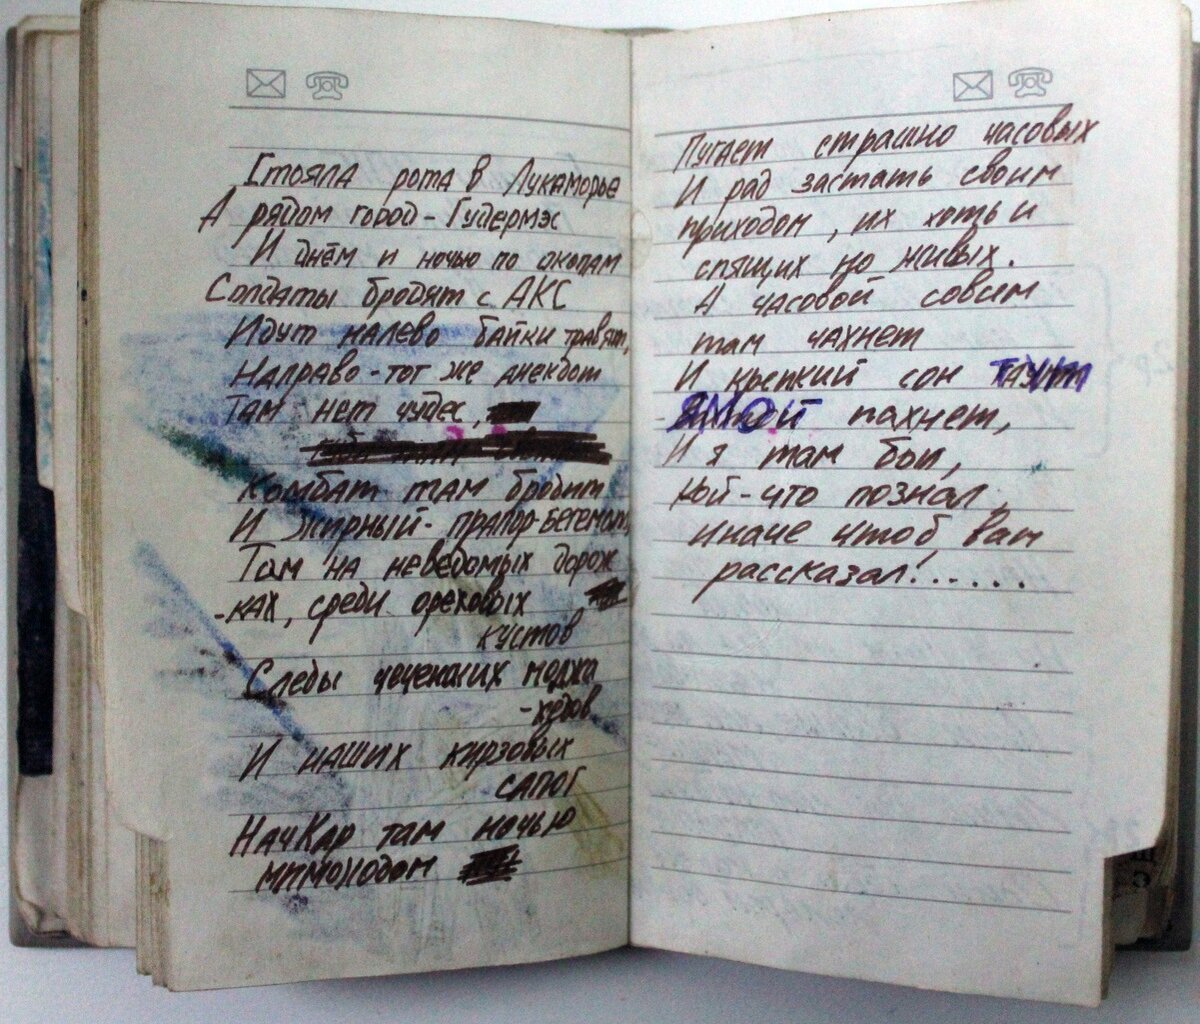 Стояла рота в Лукаморье
А рядом город - Гудермэс
И днём и ночью по окопам
Солдаты бродят с АКС
Идут налево байки травят,
Направо - тот же анекдот
Там нет чудес,
Комбат там бродит
И жирный - прапор-Бегемот,
Там на неведомых дорож
-ках, среди ореховых
кустов
Следы чеченских моджа
-хедов
И наших кирзовых
сапог
НачКар там ночью
мимоходом
Пугает страшно часовых
И рад застать своим
приходом, их хоть и
спящих но живых.
А часовой совсим
там чахнет
И крепкий сон
пахнет,
И я там был,
Кой-что познал
иначе чтоб вам
рассказал!.....